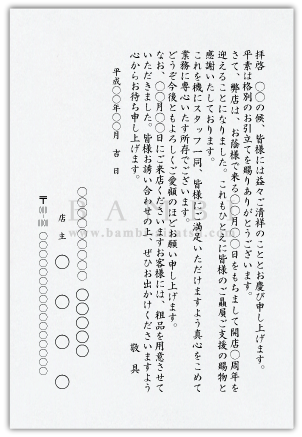 拝啓　〇〇の候、皆様には益々ご清祥のこととお慶び申し上げます。
平素は格別のお引立てを賜りありがとうございます。
さて、弊店は、お陰様で来る〇〇月〇〇日をもちまして開店〇周年を
迎えることになりました。これもひとえに皆様のご贔屓ご支援の賜物と
感謝いたしております。
これを機にスタッフ一同、皆様にご満足いただけますよう真心をこめて
業務に専心いたす所存でございます。
どうぞ今後ともよろしくご愛顧のほどお願い申し上げます。
なお、〇〇月〇〇日にご来店くださいますお客様には、粗品を用意させて
いただきました。皆様お誘い合わせの上、ぜひお出かけくださいますよう
心からお待ち申し上げます。
敬具
平成〇〇年〇〇月　吉日
店主　〇〇〇〇
〒